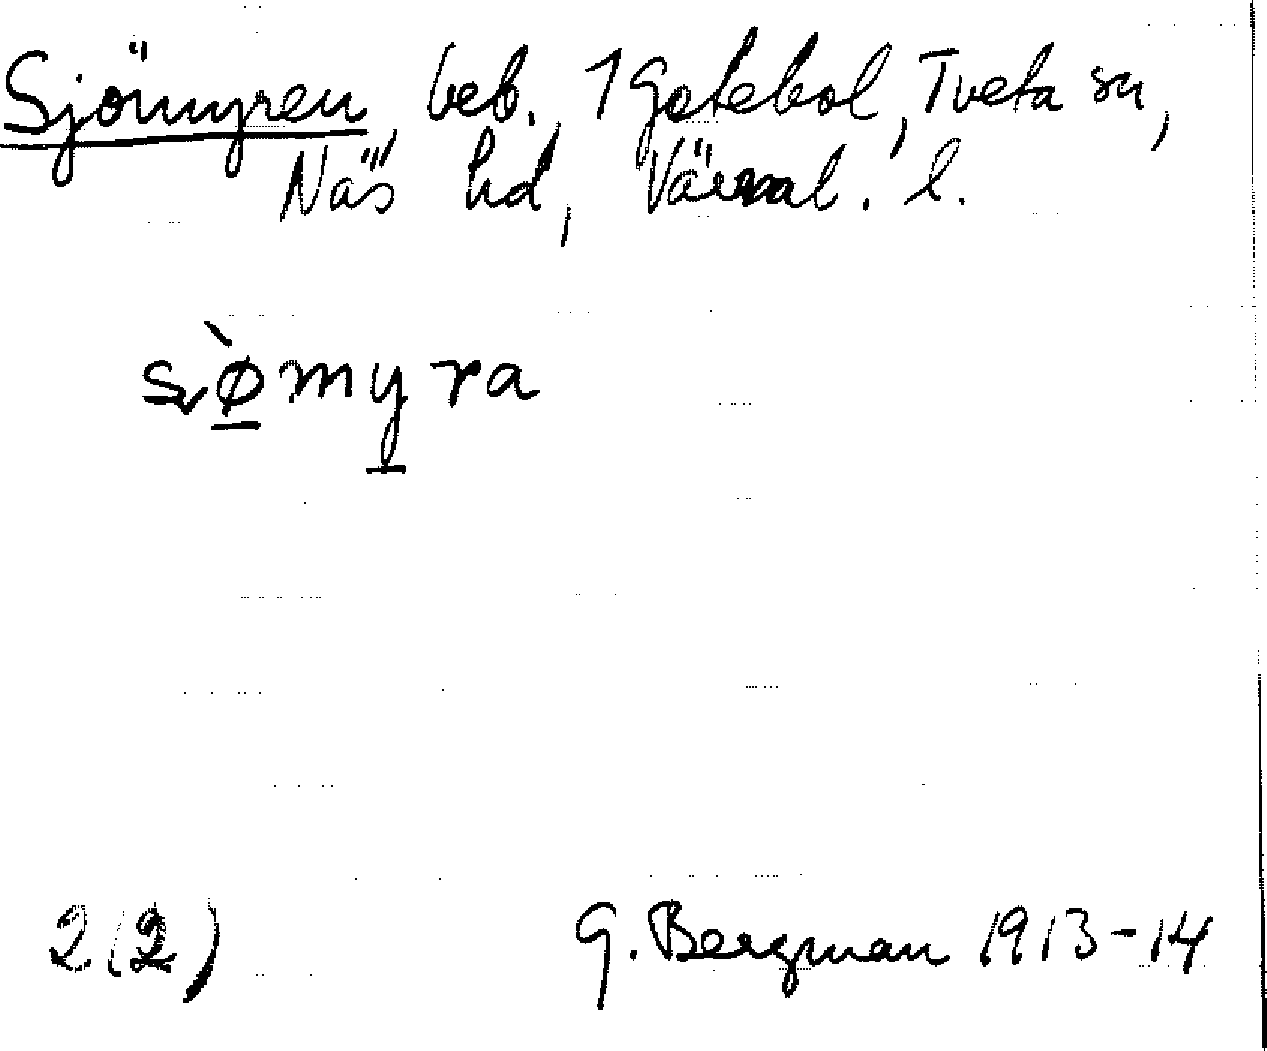 Sjömyren, beb., 1 Gatebol, Tveta sn,
Näs hd, Värml. l.
sø̀myra
2(2) G. Bergman 1913-14